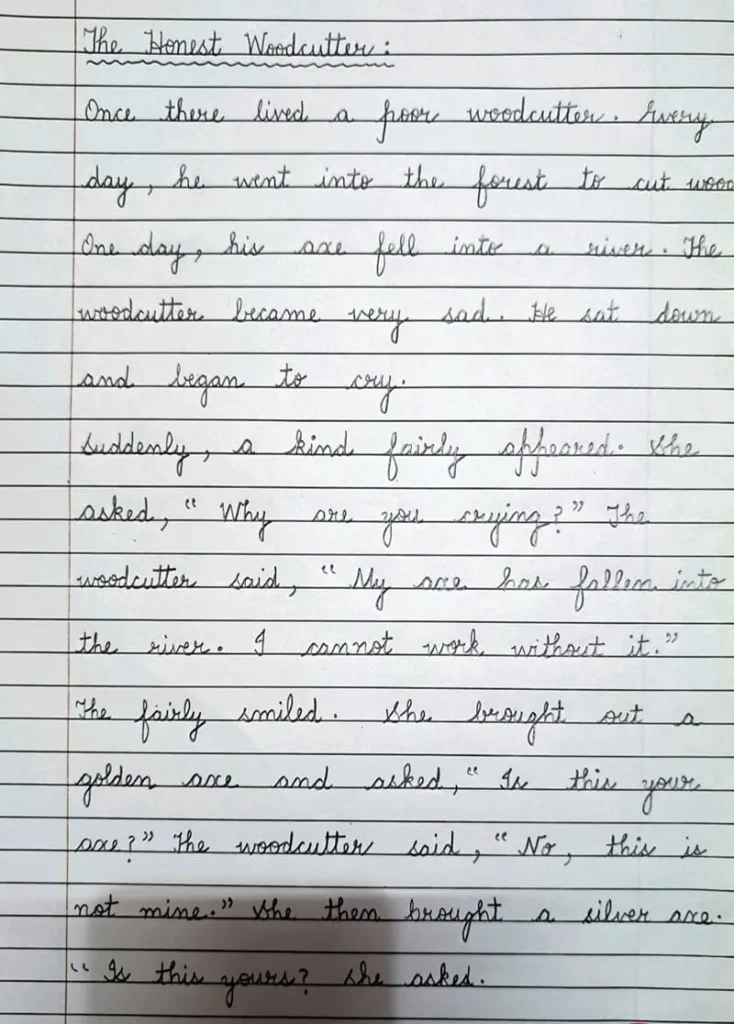 The Honest Woodcutter:
Once there lived a poor woodcutter. Every
day, he went into the forest to cut wood
One day, his axe fell into a river. The
woodcutter became very sad. He sat down
and began to cry.
Suddenly, a kind fairly appeared. She
asked, “Why are you crying?” The
woodcutter said, “My axe has fallen into
the river. I cannot work without it.”
The fairly smiled. She brought out a
golden axe and asked, “Is this your
axe?” The woodcutter said, “No, this is
not mine.” She then brought a silver axe.
“Is this yours? she asked.